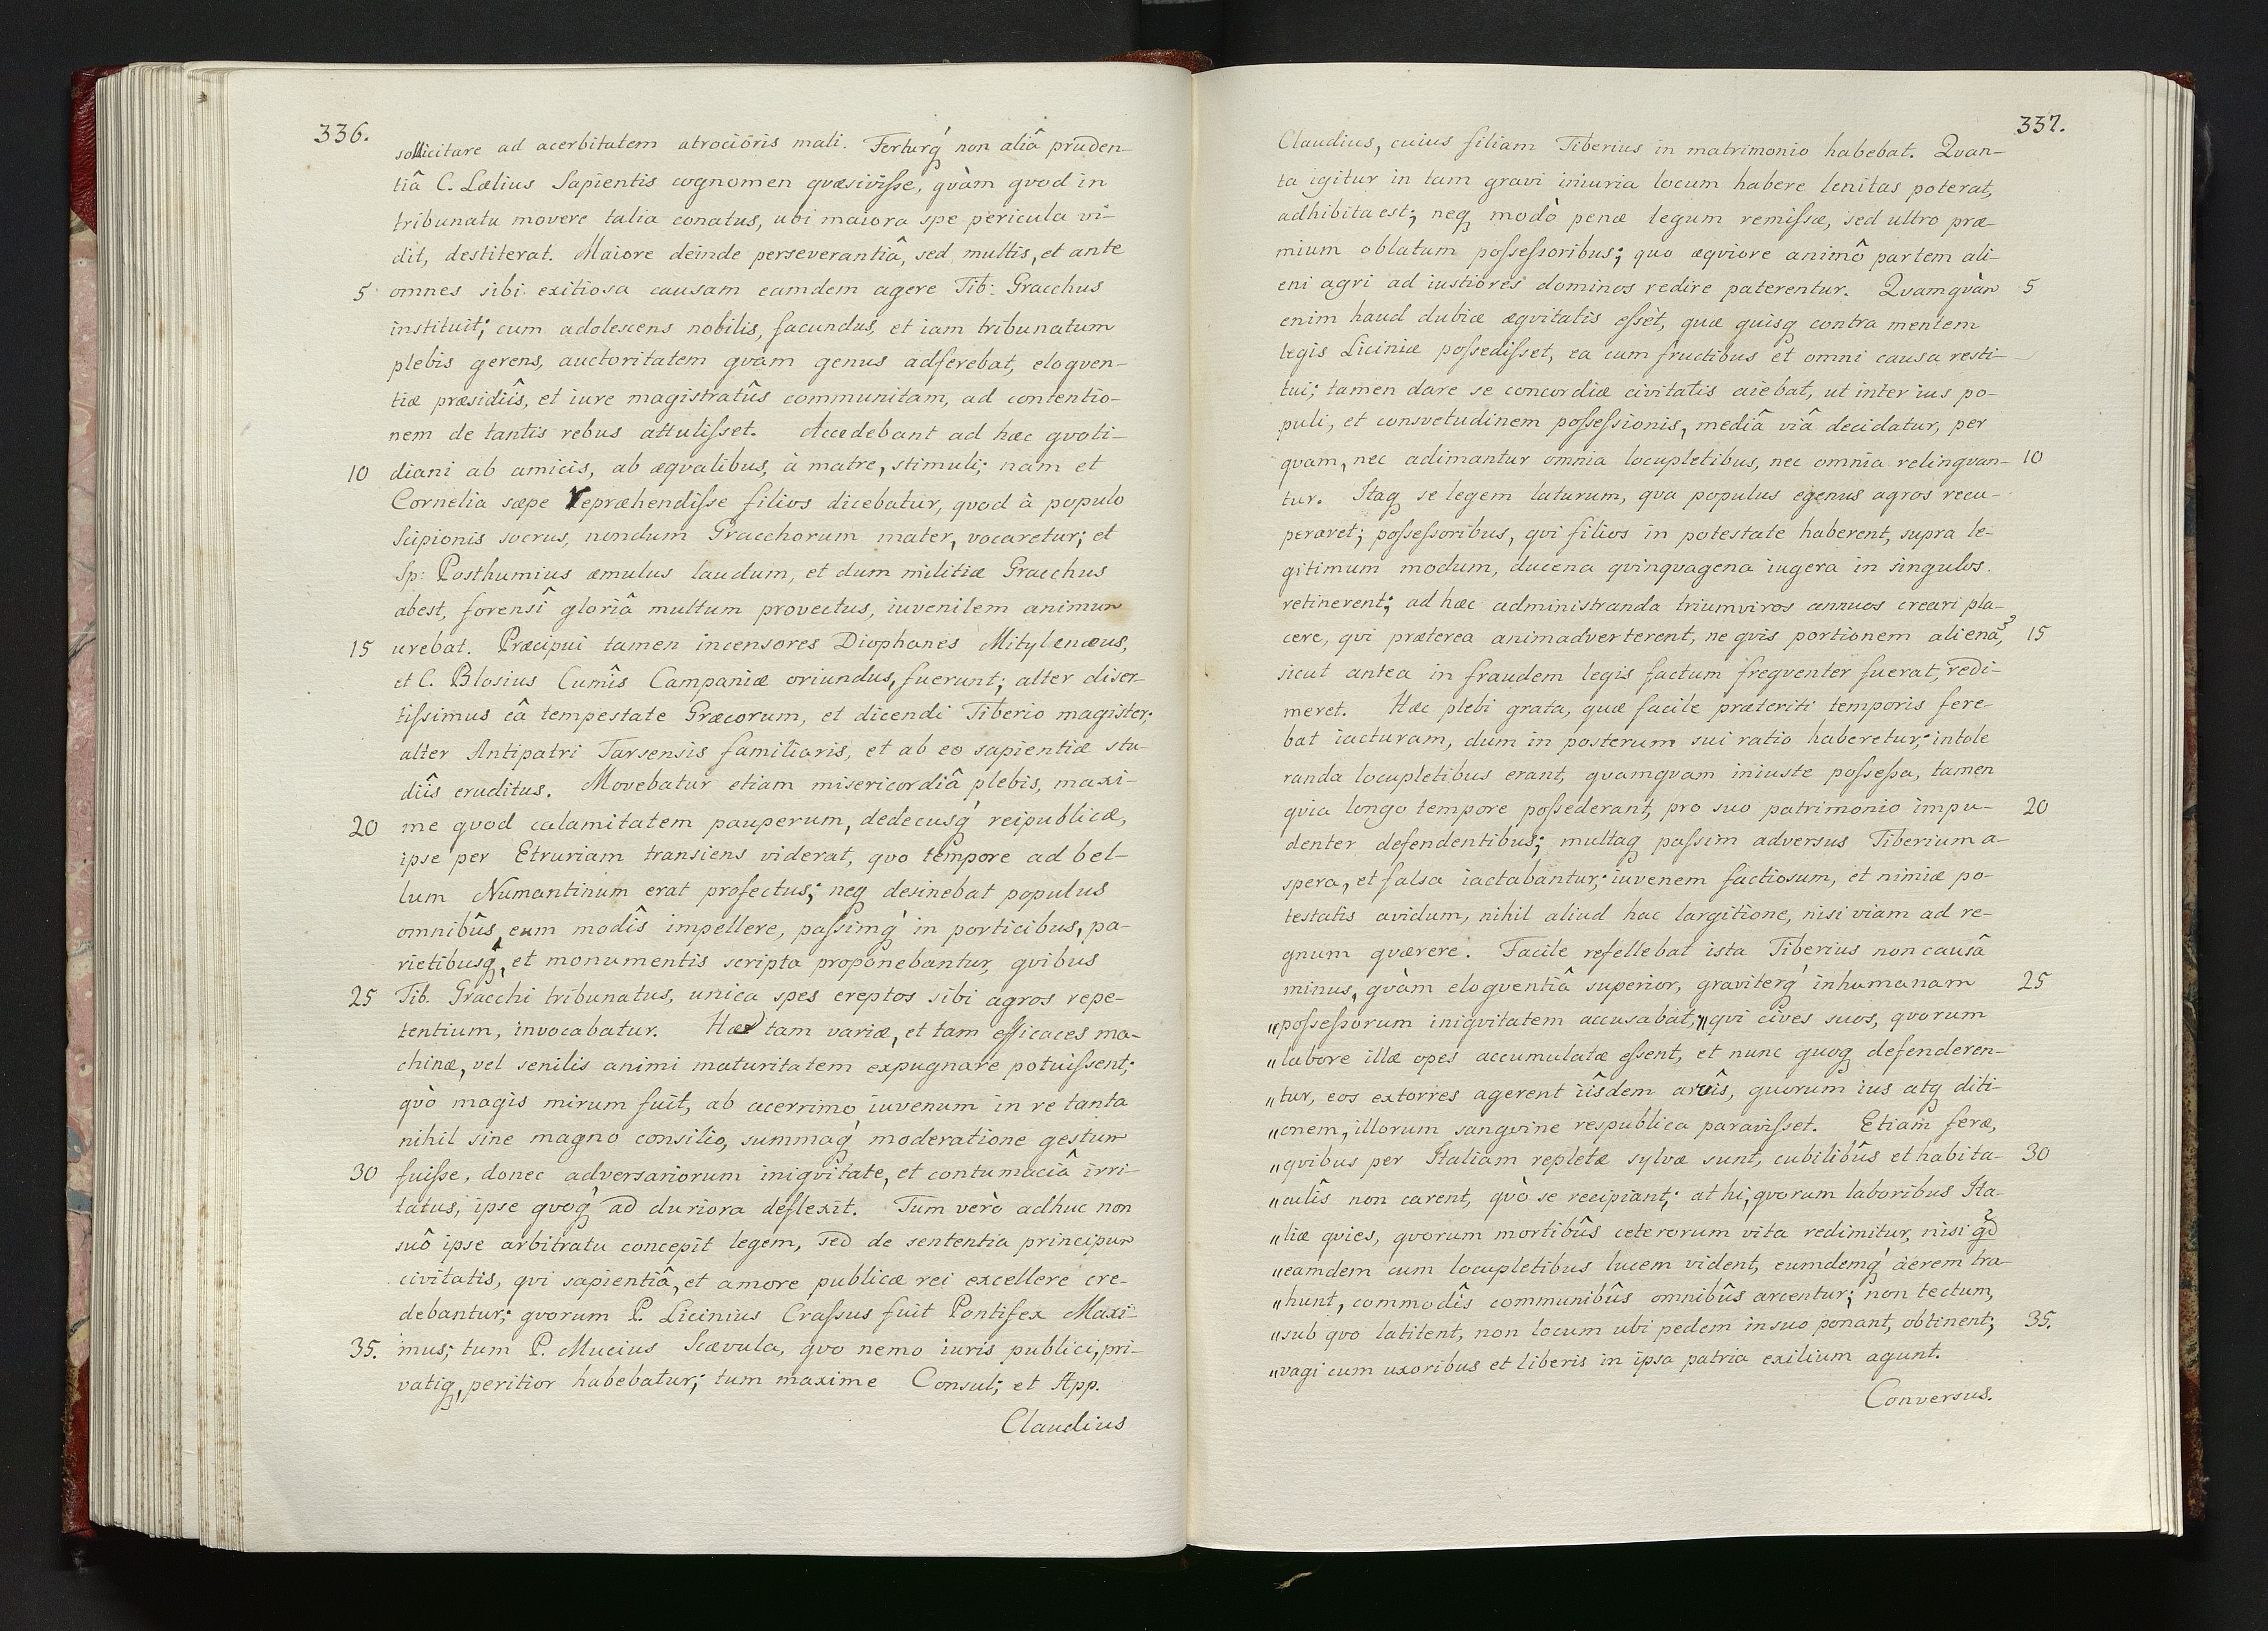 336.
sollicitare ad acerbitatem atrocioris mali. Ferturq́ non aliâ pruden-
tiâ C. Lælius Sapientis cognomen quæsivisse, qvàm qvod in
tribunatu movere talia conatus, ubi maiora spe pericula vi-
dit, destiterat. Maiore deinde perseverantiâ, sed multis, et ante
5 omnes sibi exitiosa causam eamdem agere Tib: Gracchus
instituit; cum adolescens nobilis, facundus, et iam tribunatum
plebis gerens, auctoritatem qvam genus adferebat, eloqven-
tiæ præsidiîs, et iure magistratûs communitam, ad contentio-
nem de tantis rebus attulisset. Accedebant ad hæc qvoti-
10 diani ab amicis, ab æqvalibus, à matre, stimuli; nam et
Cornelia sæpe repræhendisse filios dicebatur, qvod à populo
Scipionis socrus, nondum Gracchorum mater, vocaretur; et
Sp: Posthumius æmulus laudum, et dum militiæ Gracchus
abest, forensî gloriâ multum provectus, iuvenilem animum
15 urebat. Præcipui tamen incensores Diophanes Mitylenæus,
et C. Blosius Cumîs Campaniæ oriundus, fuerunt; alter diser-
tissimus eâ tempestate Græcorum, et dicendi Tiberio magister;
alter Antipatri Tarsensis familiaris, et ab eo sapientiæ stu-
diîs eruditus. Movebatur etiam misericordiâ plebis, maxi-
20 me qvod calamitatem pauperum, dedecusq́ reipublicæ,
ipse per Etruriam transiens viderat, qvo tempore ad bel-
lum Numantinum erat profectus; neq desinebat populus
omnibûs eum modîs impellere, passimq́ in porticibus, pa-
rietibusq, et monumentis scripta proponebantur, qvibus
25 Tib. Gracchi tribunatus, unica spes ereptos sibi agros repe-
tentium, invocabatur. Hæ tam variæ, et tam efficaces ma-
chinæ, vel senilis animi maturitatem expugnare potuissent;
qvò magis mirum fuit, ab acerrimo iuvenum in re tanta
nihil sine magno consilio, summaq́ moderatione gestum
30 fuisse, donec adversariorum iniqvitate, et contumaciâ irri-
tatus, ipse qvoq́ ad duriora deflexit. Tum verò adhuc non
suô ipse arbitratu concepit legem, sed de sententia principum
civitatis, qvi sapientiâ, et amore publicæ rei excellere cre-
debantur; qvorum P. Licinius Crassus fuit Pontifex Maxi-
35. mus; tum P. Mucius Scævula, qvo nemo iuris publici, pri-
vatiq, peritior habebatur; tum maxime Consul; et App.
Claudius
337.
Claudius, cuius filiam Tiberius in matrimonio habebat. Qvan-
ta igitur in tam gravi iniuria locum habere lenitas poterat,
adhibita est; neq modò penæ legum remissæ, sed ultro præ
mium oblatum possessoribus; quo æqviore animô partem ali-
eni agri ad iustiores dominos redire paterentur. Qvamqvàm 5
enim haud dubiæ æqvitatis esset, quæ quisq contra mentem
legis Liciniæ possedisset, ea cum fructibus et omni causa resti-
tui; tamen dare se concordiæ civitatis aiebat, ut inter ius po-
puli, et consvetudinem possessionis, mediâ viâ decidatur, per
qvam, nec adimantur omnia locupletibus, nec omnia relinqvan- 10
tur. Itaq se legem laturum, qva populus egenus agros recu-
peraret; possessoribus, qvi filios in potestate haberent, supra le-
gitimum modum, ducena qvinqvagena iugera in singulos.
retinerent; ad hæc administranda triumviros annuos creari pla-
cere, qvi præterea animadverterent, ne qvis portionem alienã, 15
sicut antea in fraudem legis factum freqventer fuerat, redi-
meret. Hæc plebi grata, quæ facile præteriti temporis fere-
bat iacturam, dum in posterum sui ratio haberetur; intole
randa locupletibus erant, qvamqvam iniuste possessa, tamen
qvia longo tempore possederant, pro suo patrimonio impu- 20
denter defendentibus; multaq passim adversus Tiberium a-
spera, et falsa iactabantur; iuvenem factiosum, et nimiæ po-
testatis avidum, nihil aliud hac largitione, nisi viam ad re-
gnum qværere. Facile refellebat ista Tiberius non causâ
minus, qvàm eloqventiâ superior, graviterq́ inhumanam 25
„possessorum iniqvitatem accusabat, „qvi cives suos, qvorum
„labore illæ opes accumulatæ essent, et nunc quoq defenderen-
„tur, eos extorres agerent iîsdem arvîs, quorum ius atq diti-
„onem, illorum sangvine respublica paravisset. Etiam feræ,
„qvibus per Italiam repletæ sylvæ sunt, cubilibûs et habita- 30
„culîs non carent, qvò se recipiant; at hi, qvorum laboribus Ita-
„liæ qvies, qvorum mortibûs ceterorum vita redimitur, nisi qd
„eamdem cum locupletibus lucem vident, eumdemq́ äerem tra-
„hunt, commodîs communibûs omnibûs arcentur; non tectum,
„sub qvo latitent, non locum ubi pedem in suo ponant, obtinent; 35.
„vagi cum uxoribus et liberis in ipsa patria exilium agunt.
Conversus.